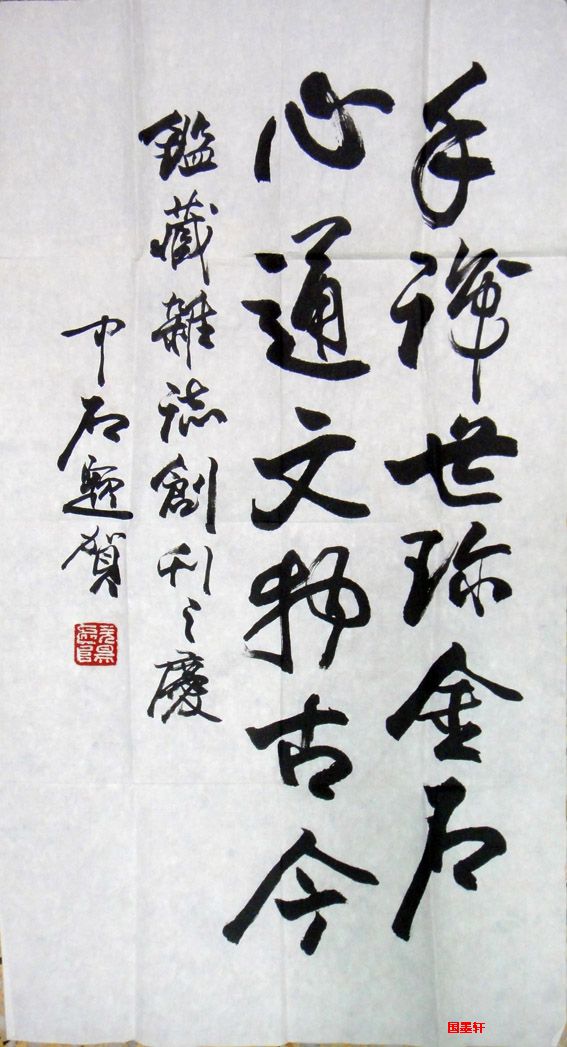 手世珍金石
心通文物古今
鑑藏雜誌創刊之慶
中石題賀
国墨轩